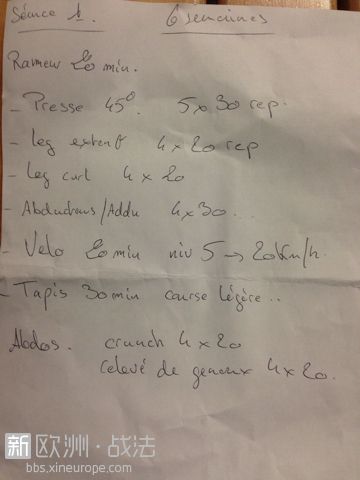 Séance 1. 6 semaines
Rameur 20 min.
- Presse 45° 5 x 30 rep.
- leg extent 4 x 20 rep
- leg curl 4 x 20
- Abducteurs/Addu 4 x 30...
- Velo 20 min niv 5 → 20Km/h.
- Tapis 30 min course légère..
Abdos. crunch 4 x 20
relevé de genoux 4 x 20.
新欧洲·战法
bbs.xineurope.com